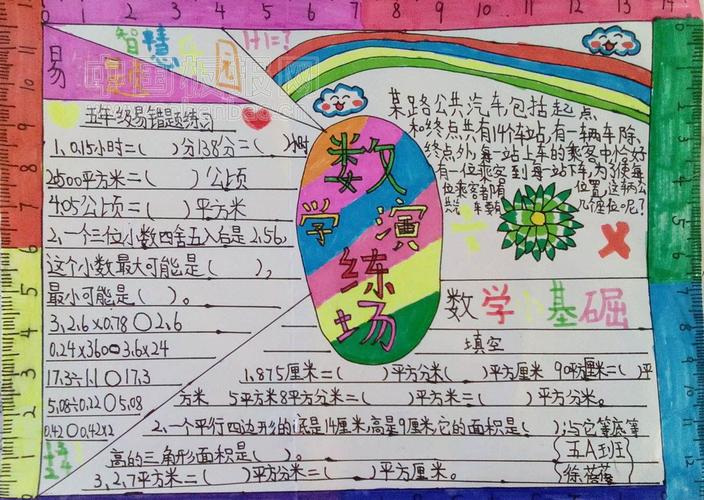 0 1 2 3 4 5 6 7 8 9 10 11 12 13 14
易
智慧
园
1+1=?
中国板报网
五年级易错题练习
1、0.15小时=( )分138分=( )小时
2500平方米=( )公顷
4.05公顷=( )平方米
2、一个三位小数四舍五入后是2.56,
这个小数最大可能是( ),
最小可能是( )。
3、2.6×0.78〇2.6
0.24×360〇3.6×24
17.3÷1.1〇17.3
5.08÷0.22〇5.08
0.42〇0.42×2
数学演练场
某路公共汽车包括起点
和终点共有14个车站,有一辆车除
终点外,每一站上车的乘客中恰好
有一位乘客到每一站下车,为了使每
位乘客都有 位置,这辆公
共汽车 几个座位呢?
÷ ×
数学小基础
填空
1、875厘米=( )平方分米( )平方厘米 90平方厘米=( )平
方米 5平方米8平方分米=( )平方米=( )平方分米。
2、一个平行四边形的底是14厘米,高是9厘米,它的面积是( );与它等底等
高的三角形面积是( )。
3、2.7平方米=( )平方分米=( )平方厘米。
五A班
徐蓓蓓